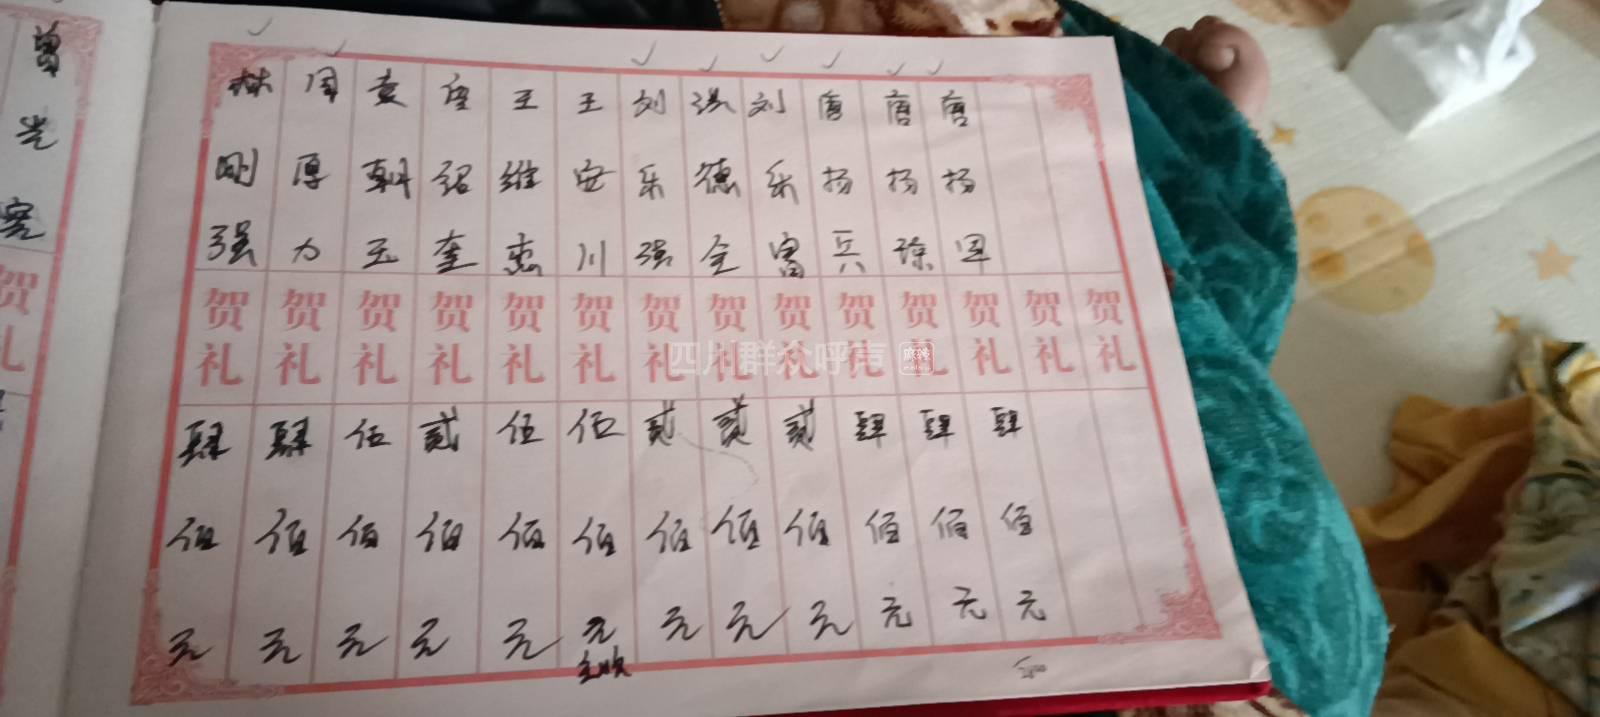 曾
林刚强 贺礼 肆佰元
周厚力 贺礼 肆佰元
袁朝玉 贺礼 伍佰元
绍奎 贺礼 贰佰元
王维惠 贺礼 伍佰元
王安川 贺礼 伍佰元
刘乐强 贺礼 贰佰元
洪德全 贺礼 贰佰元
刘乐富 贺礼 贰佰元
唐扬兵 贺礼 肆佰元
唐扬琼 贺礼 肆佰元
唐扬军 贺礼 肆佰元
贺礼
贺礼
四川群众呼声
麻辣